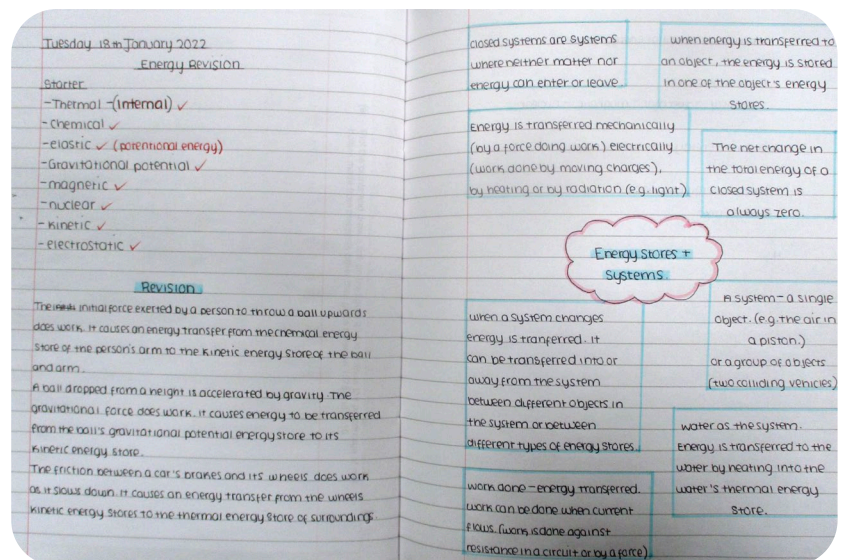 Tuesday 18th January 2022
Energy Revision
Starter
-Thermal -(internal) ✓
-Chemical ✓
-elastic ✓ (potentional energy)
-Gravitational potential ✓
-magnetic ✓
-nuclear ✓
-kinetic ✓
-electrostatic ✓
Revision
The initial force exerted by a person to throw a ball upwards
does work. It causes an energy transfer from the chemical energy
store of the person's arm to the kinetic energy store of the ball
and arm.
A ball dropped from a height is accelerated by gravity. The
gravitational force does work. it causes energy to be transferred
from the ball's gravitational potential energy store to its
kinetic energy store.
The friction between a car's brakes and its wheels does work
as it slows down. It causes an energy transfer from the wheels
kinetic energy stores to the thermal energy store of surroundings.
closed systems are systems
where neither matter nor
energy can enter or leave.
when energy is transferred to
an object, the energy is stored
in one of the object's energy
stores.
Energy is transferred mechanically
(by a force doing work) electrically
(work done by moving charges),
by heating or by radiation (e.g. light)
The net change in
the total energy of a
closed system is
always zero.
Energy Stores +
Systems
when a system changes
energy is tranferred. It
can be transferred into or
away from the system
between different objects in
the system or between
different types of energy stores.
A system - a single
object. (e.g. the air in
a piston.)
or a group of objects
(two colliding vehicles)
water as the system.
Energy is transferred to the
water by heating into the
water's thermal energy
store.
work done - energy transferred.
work can be done when current
flows. (work is done against
resistance in a circuit or by a force)